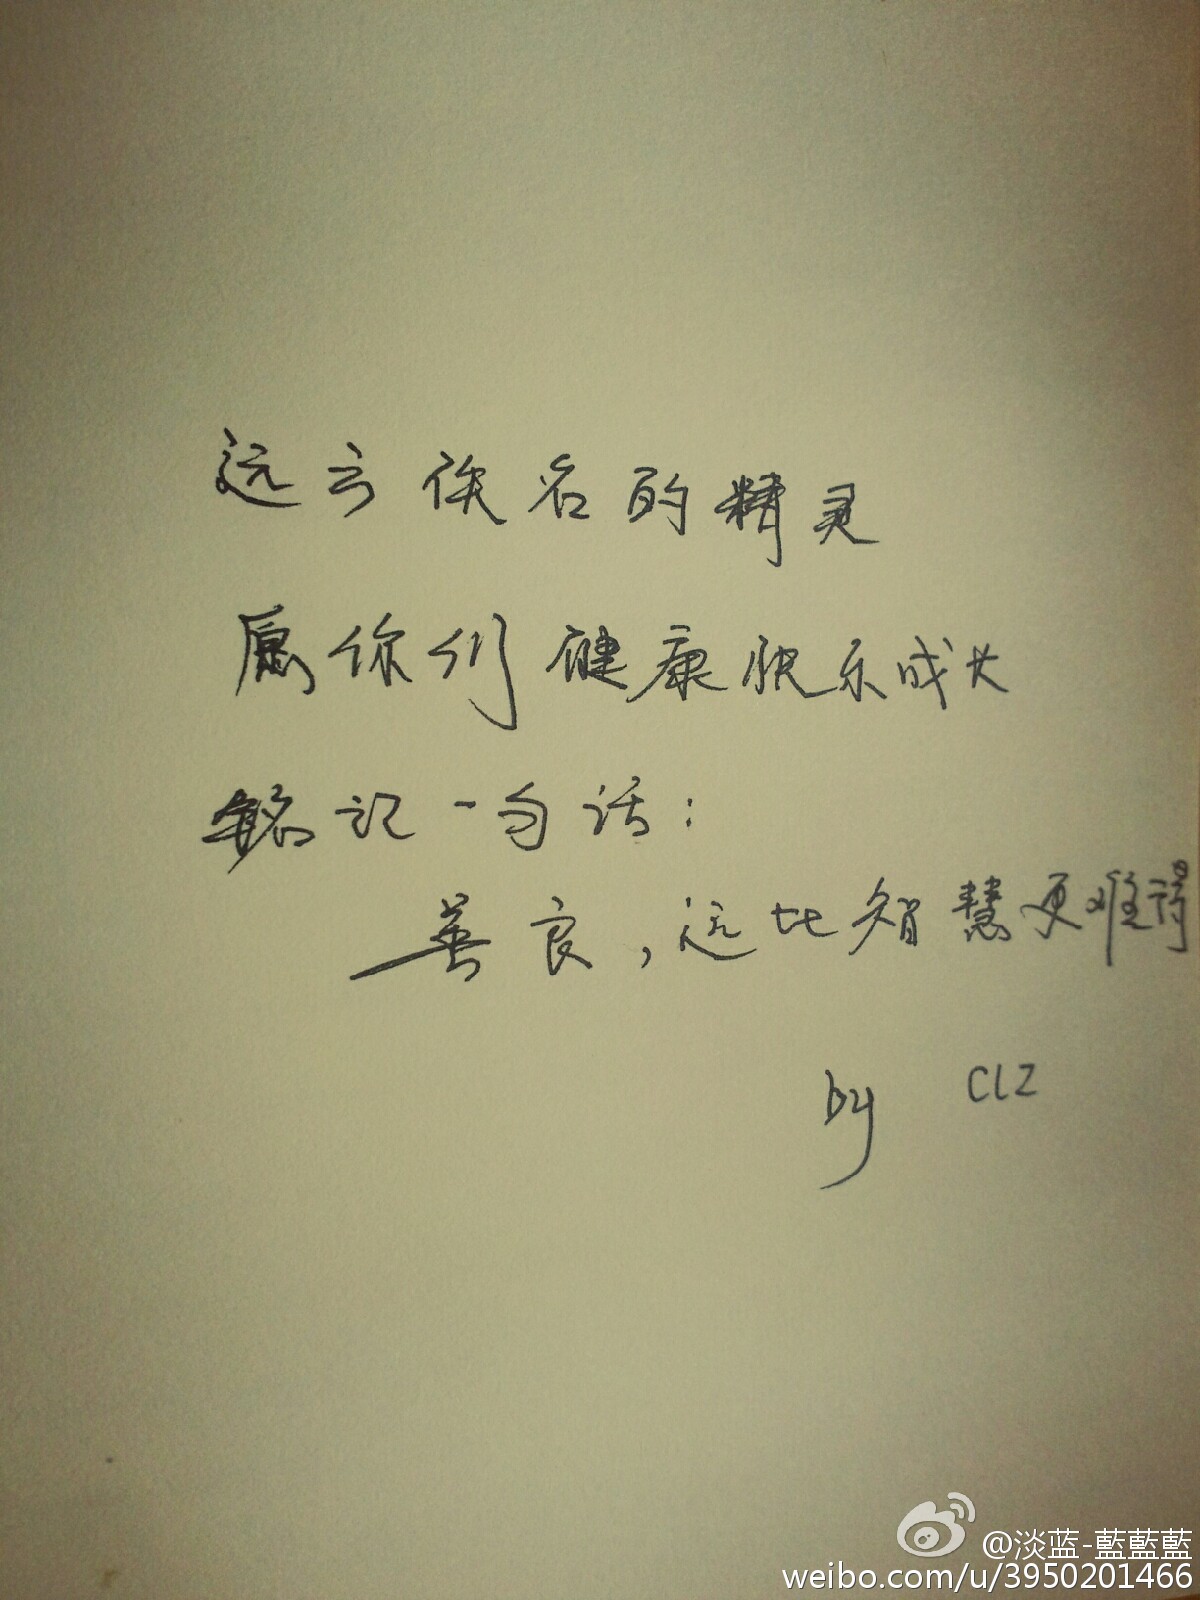 远方佚名的精灵
愿你们健康快乐成长
铭记一句话：
善良，远比智慧更难得
by CLZ
@淡蓝-藍藍藍
weibo.com/u/3950201466